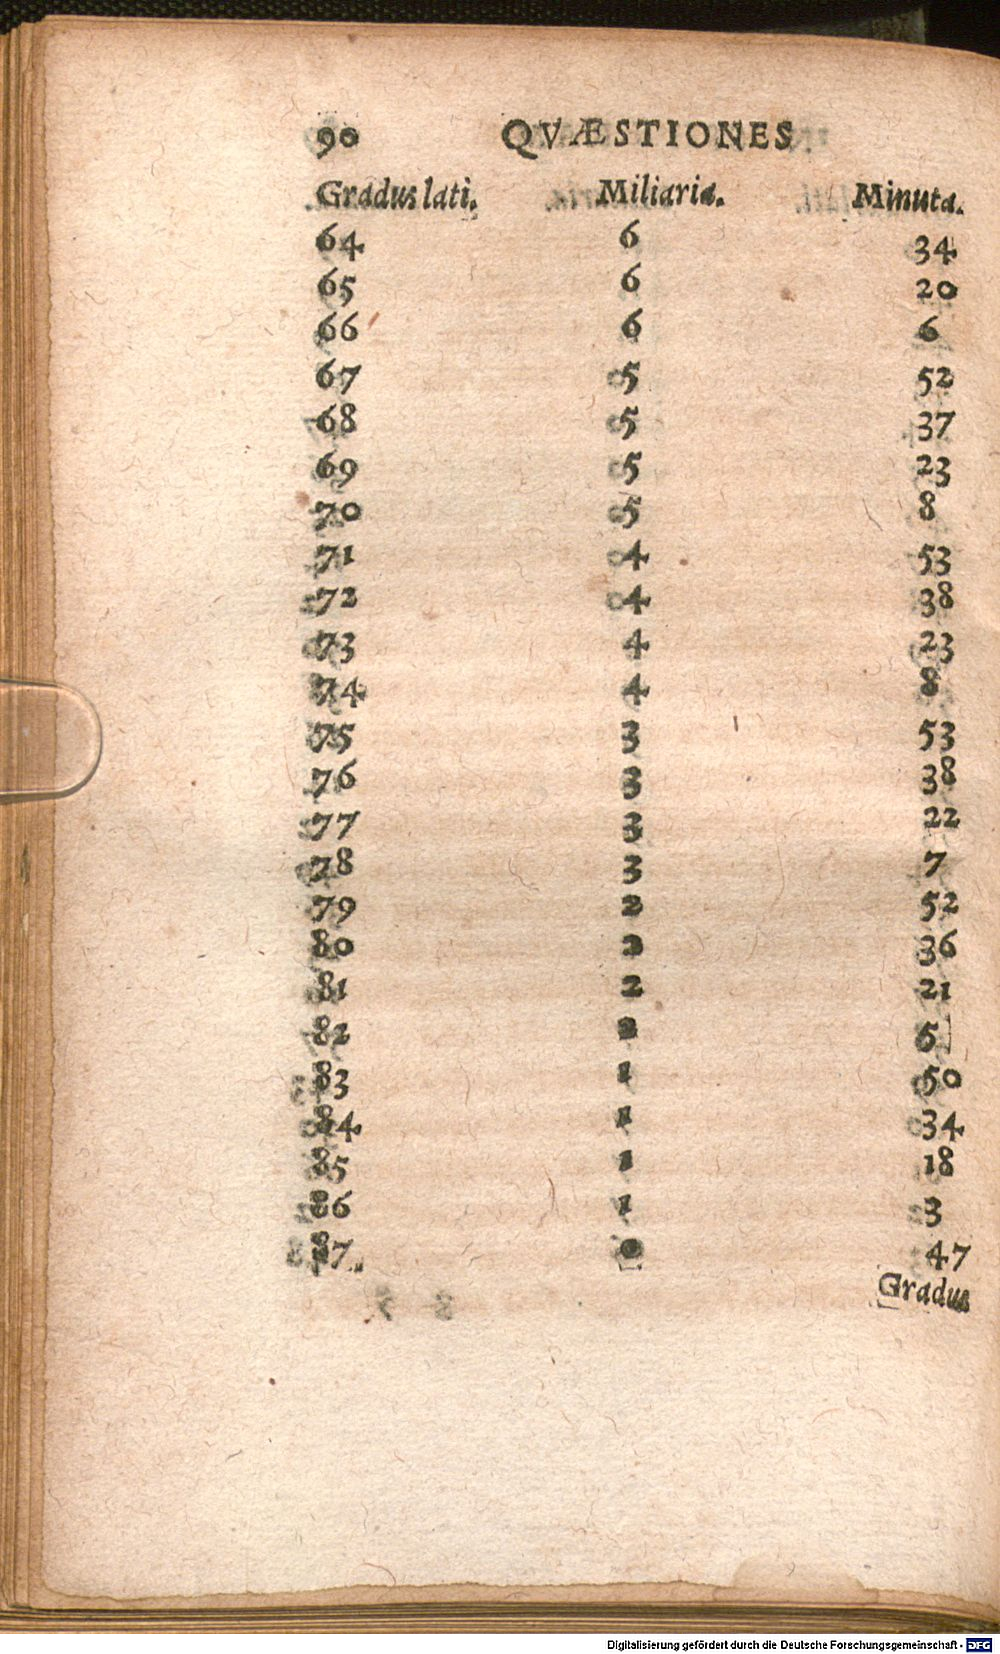 90 QVÆSTIONES
Gradus lati. Miliaria. Minuta.
64 6 34
65 6 20
66 6 6
67 5 52
68 5 37
69 5 23
70 5 8
71 4 53
72 4 38
73 4 23
74 4 8
75 3 53
76 3 38
77 3 22
78 3 7
79 2 52
80 2 36
81 2 21
82 2 5
83 1 50
84 1 34
85 1 18
86 1 3
87. 0 47
Gradus
Digitalisierung gefördert durch die Deutsche Forschungsgemeinschaft - DFG